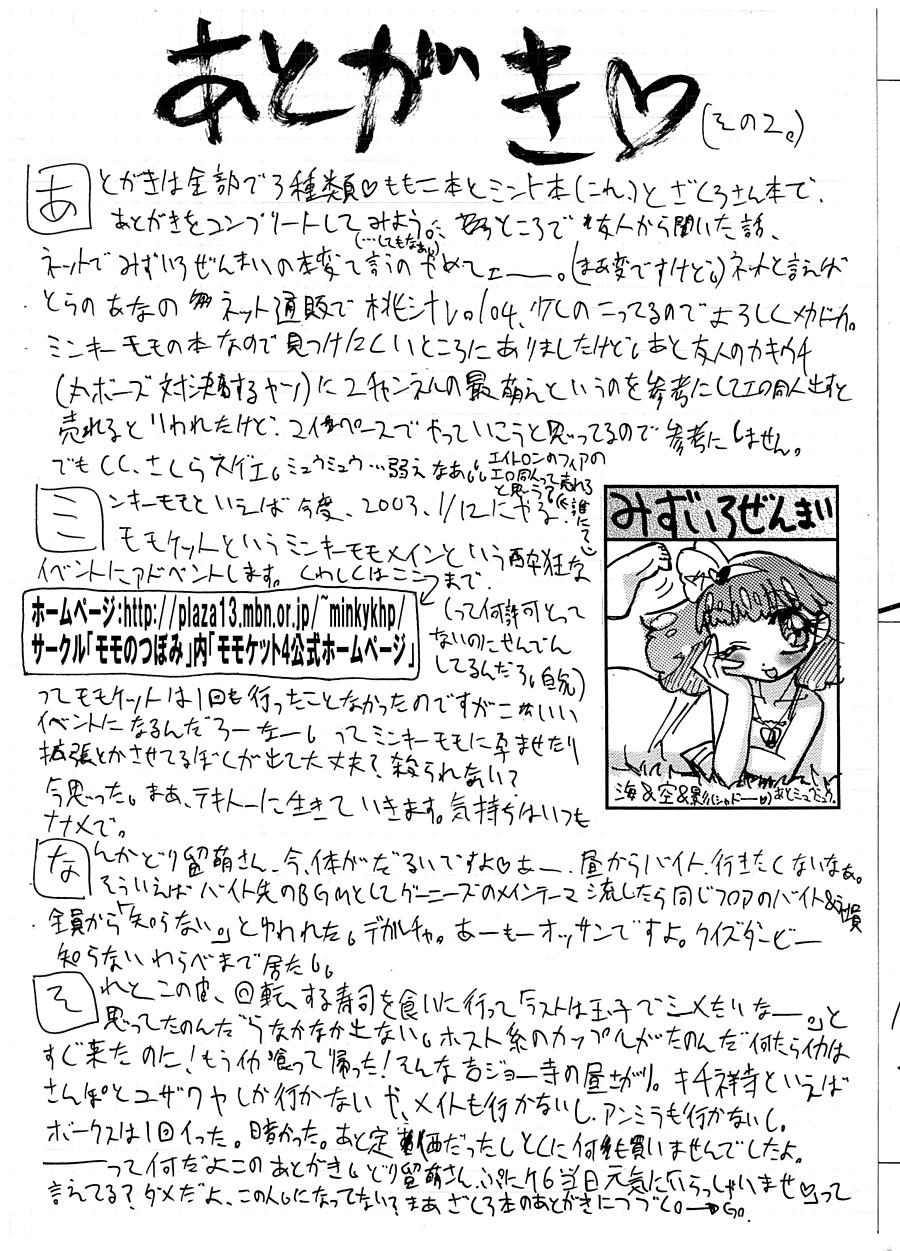 あとがき♡
(その2。)
あとがきは全部で3種類♡ももこ本とミント本(これ。)とざくろさん本で、
あとがきをコンプリートしてみよう。ところで友人から聞いた話、
(…してもなあ)
ネットでみずいろぜんまいの本変て言うのやめてェ——。(まあ変ですけど。)ネットと言えば
とらのあなのネット通販で桃汁Vol04、少しのこってるのでよろしくメカドック。
ミンキーモモの本なので見つけにくいところにありましたけど。あと友人のカキウチ
(丸ボーズ対決するヤツ)に2チャンネルの最萌えというのを参考にしてエロ同人出すと
売れるといわれたけど、マイペースでやっていこうと思ってるので参考にしません。
でもCC、さくらスゲエ。ミュウミュウ…弱えなあ。
エイトロンのフィアの
エロ同人って売れる
と思う?(誰にて)
ミンキーモモといえば今度、2003、1/12にやる
モモケットというミンキーモモメインという酔狂な
イベントにアドベントします。くわしくはここまで。
ホームページ:http://plaza13.mbn.or.jp/~minkykhp/
サークル「モモのつぼみ」内「モモケット4公式ホームページ」
(って何許可とって
ないのにせんでん
してるんだろ。自分)
ってモモケットは1回も行ったことなかったのですがこ
いいイベントになるんだろーなー。ってミンキーモモに孕ませたり
拡張とかさせてるぼくが出て大丈夫?殺られない?
今思った。まあ、テキトーに生きていきます。気持ちはいつも
ナナメで。
みずいろぜんまい
海&空&影(シャドー♡)あとミュウミュウ。
なんかどり留萌さん、今、体がだるいですよ♡あー、昼からバイト、行きたくないなあ。
そういえばバイト先のBGMとしてグーニーズのメインテーマ流したら同じフロアのバイト&社員
全員から「知らない。」とゆわれた。デカルチャ。あーもーオッサンですよ。クイズダービー
知らないわらべまで居たし。
それとこの前、回転する寿司を食いに行って「ラストは玉子でシメたいなー。」と
思ってたのんだらなかなか出ない。ホスト系のカップルがたのんだ何たらイカは
すぐ来たのに!もうイカ喰って帰った!そんな吉ジョー寺の昼さがり。キチ祥寺といえば
さんぽとユザワヤしか行かないや、メイトも行かないし、アンミラも行かないし。
ボークスは1回イった。暗かった。あと定価だったしとくに何も買いませんでしたよ。
——って何だよこのあとがき。どり留萌さん、ぷにケ6当日元気に「いらっしゃいませ♡」って
言えてる?ダメだよ、この人。になってない?まあざくろ本のあとがきにつづく。→Go.